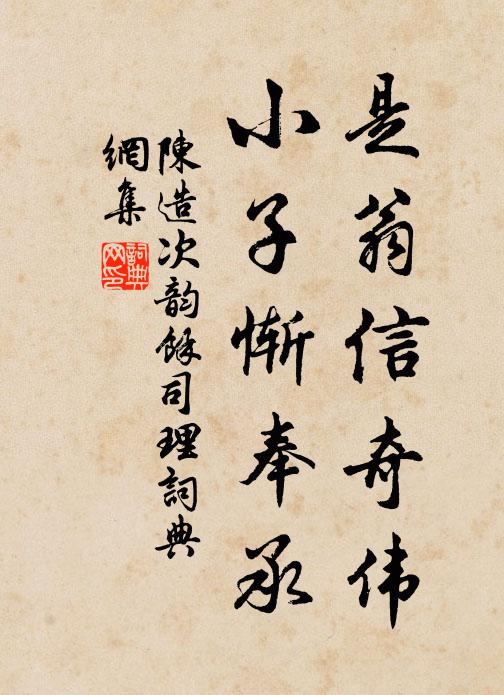 是翁信奇伟
小子惭奉承
陳造次韵餘司理詞典
網集
詞典
网印